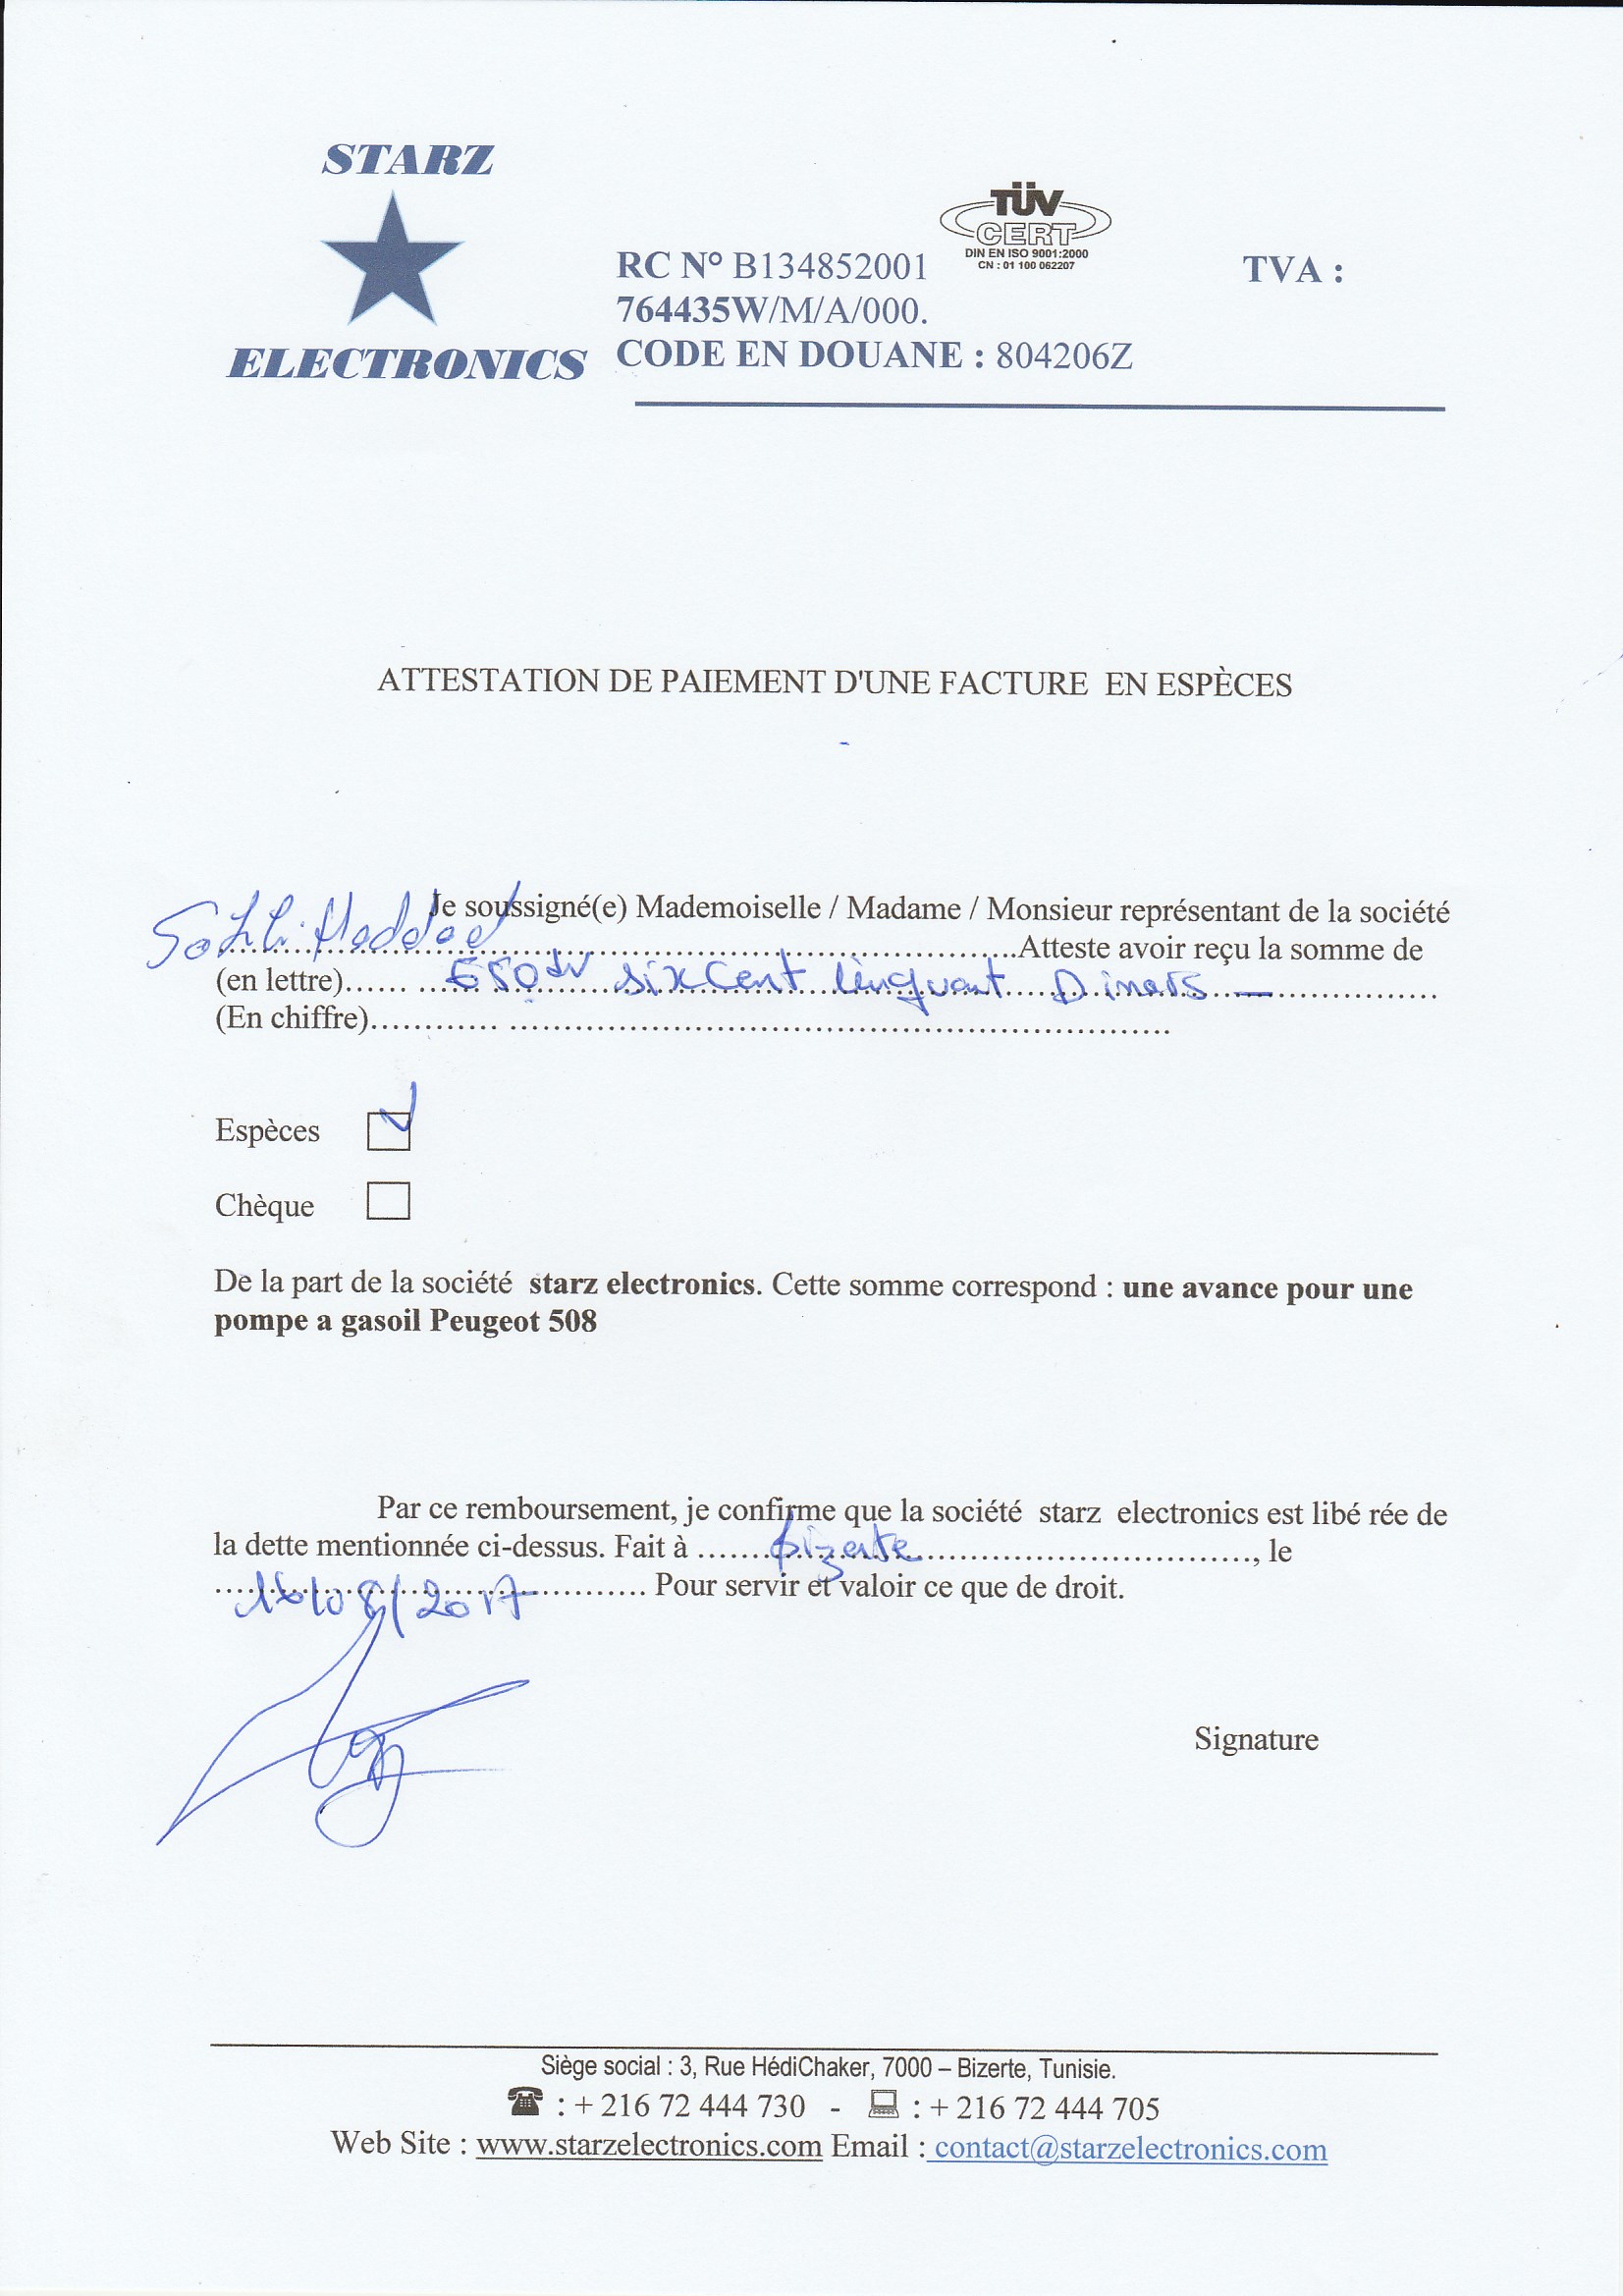 STARZ
ELECTRONICS
TÜV
CERT
DIN EN ISO 9001:2000
CN : 01 100 062207
RC N° B134852001 TVA :
764435W/M/A/000.
CODE EN DOUANE : 804206Z
ATTESTATION DE PAIEMENT D'UNE FACTURE EN ESPÈCES
Je soussigné(e) Mademoiselle / Madame / Monsieur représentant de la société
Haddad ..........Atteste avoir reçu la somme de
(en lettre)...... 650 sixCent cinquant Dinars —
(En chiffre)............ ..........
Espèces ✓
Chèque
De la part de la société starz electronics. Cette somme correspond : une avance pour une
pompe a gasoil Peugeot 508
Par ce remboursement, je confirme que la société starz electronics est libé rée de
la dette mentionnée ci-dessus. Fait à ....... bizerte .........., le
16/08/2017 .......... Pour servir et valoir ce que de droit.
Signature
Siège social : 3, Rue HédiChaker, 7000 – Bizerte, Tunisie.
: + 216 72 444 730 - : + 216 72 444 705
Web Site : www.starzelectronics.com Email : contact@starzelectronics.com